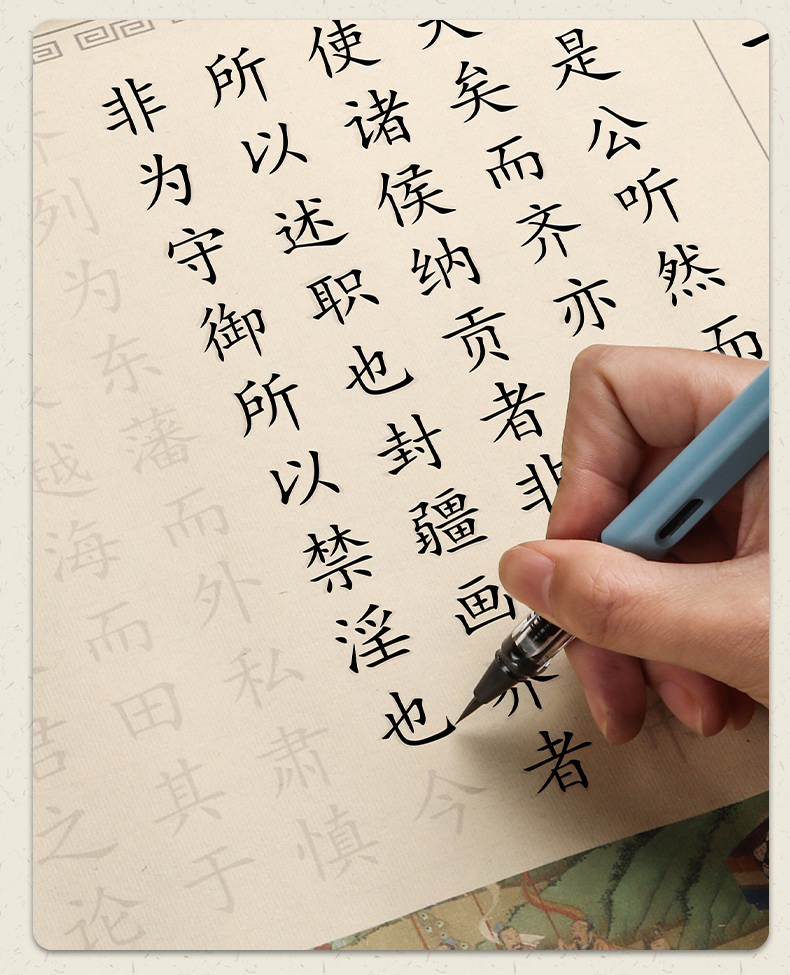 是公听然而
矣而齐亦
使诸侯纳贡者非
所以述职也封疆画界者
非为守御所以禁淫也今
齐列为东藩而外私肃慎
越海而田其于
之论